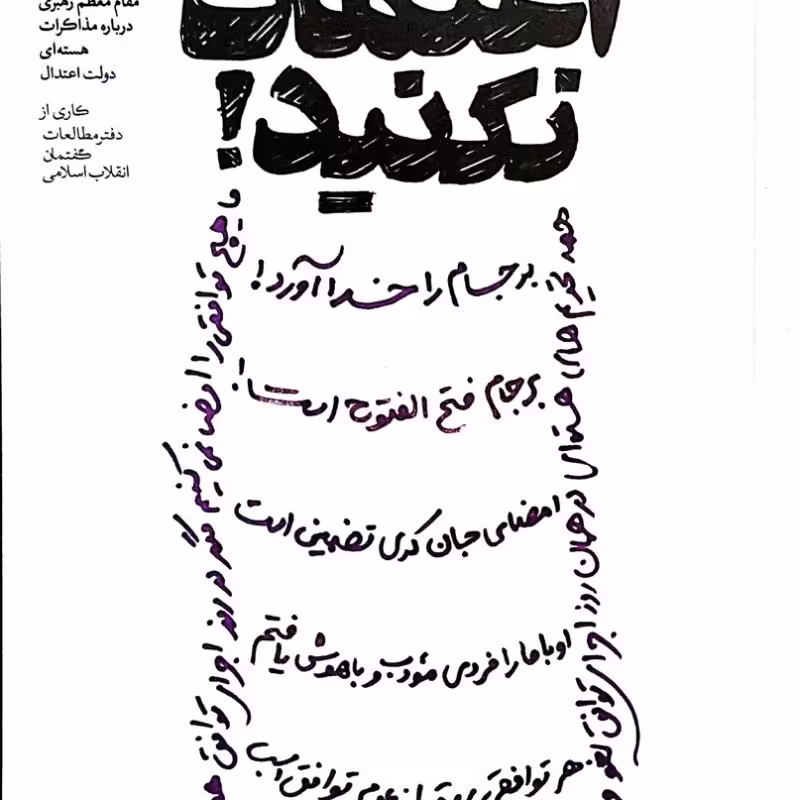 مقام معظم رهبری
درباره مذاکرات
هسته‌ای
دولت اعتدال
کاری از
دفتر مطالعات
گفتمان
انقلاب اسلامی
اعتماد
نکنید!
برجام را خدا آورد!
برجام فتح الفتوح است!
امضای جان کری تضمین است
اوباما را فردی مؤدب و باهوش یافتم
هر توافقی از عدم توافق است
همه تحریم های هسته‌ای در همان روز اجرای توافق لغو
ما هیچ توافقی را امضا نمی کنیم مگر در روز اجرای توافق